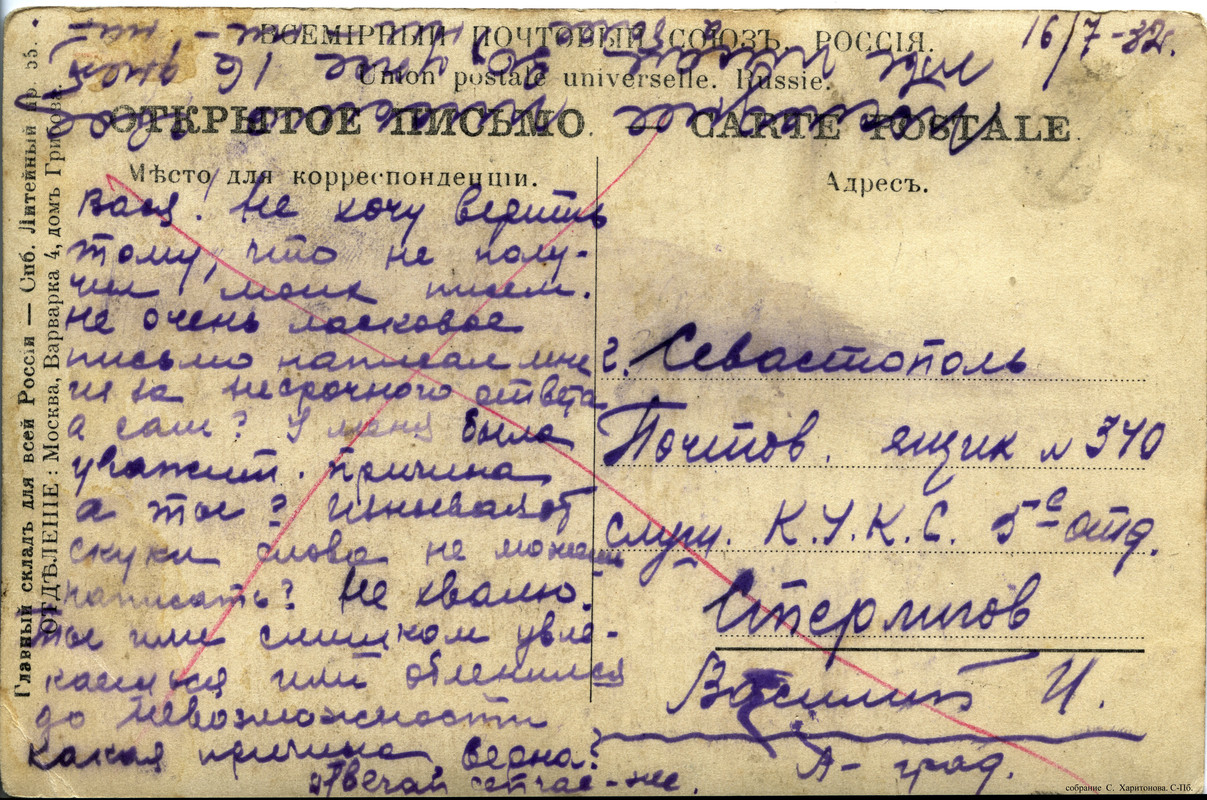 16/7-32г.
ВСЕМІРНЫЙ ПОЧТОВЫЙ СОЮЗЪ. РОССІЯ.
Union postale universelle. Russie.
ОТКРЫТОЕ ПИСЬМО. CARTE POSTALE
Мѣсто для корреспонденціи.
Вася! Не хочу верить
тому, что не полу-
чил моих писем.
Не очень ласковое
письмо написал мне
из за несрочного ответа
а сам? У меня была
уважит. причина
а ты? Изнывая от
скуки слова не можешь
написать? Не хвалю.
Ты или слишком увле-
каешься или обленился
до невозможности
какая причина верна?
отвечай сейчас-же.
Адресъ.
г. Севастополь
Почтов. ящик № 340
слуш. К.У.К.С. 5е отд.
Стерлигов
Василий И.
А- град.
Главный складъ для всей Россіи — Спб. Литейный пр. 55.
ОТДѢЛЕНІЕ: Москва, Варварка 4, домъ Грибова.
собрание С. Харитонова. С-Пб.